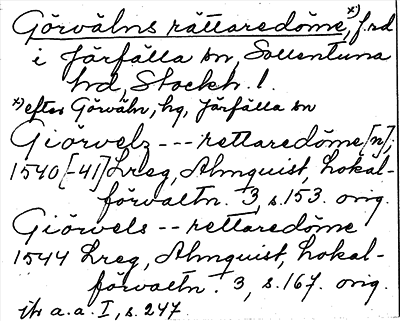 Görvälns rättaredöme,*) f.rd
i Järfälla sn, Sollentuna
hd, Stockh. l.
*) efter Görväln, hg, Järfälla sn
Giörvels --- rettaredöme[n];
1540[-41] Lreg, Almquist, Lokal-
förvaltn. 3, s.153. orig.
Giörvels -- rettaredöme
1544 Lreg, Almquist, Lokal-
förvaltn. 3, s.167. orig.
itr a.a. I, s.247.